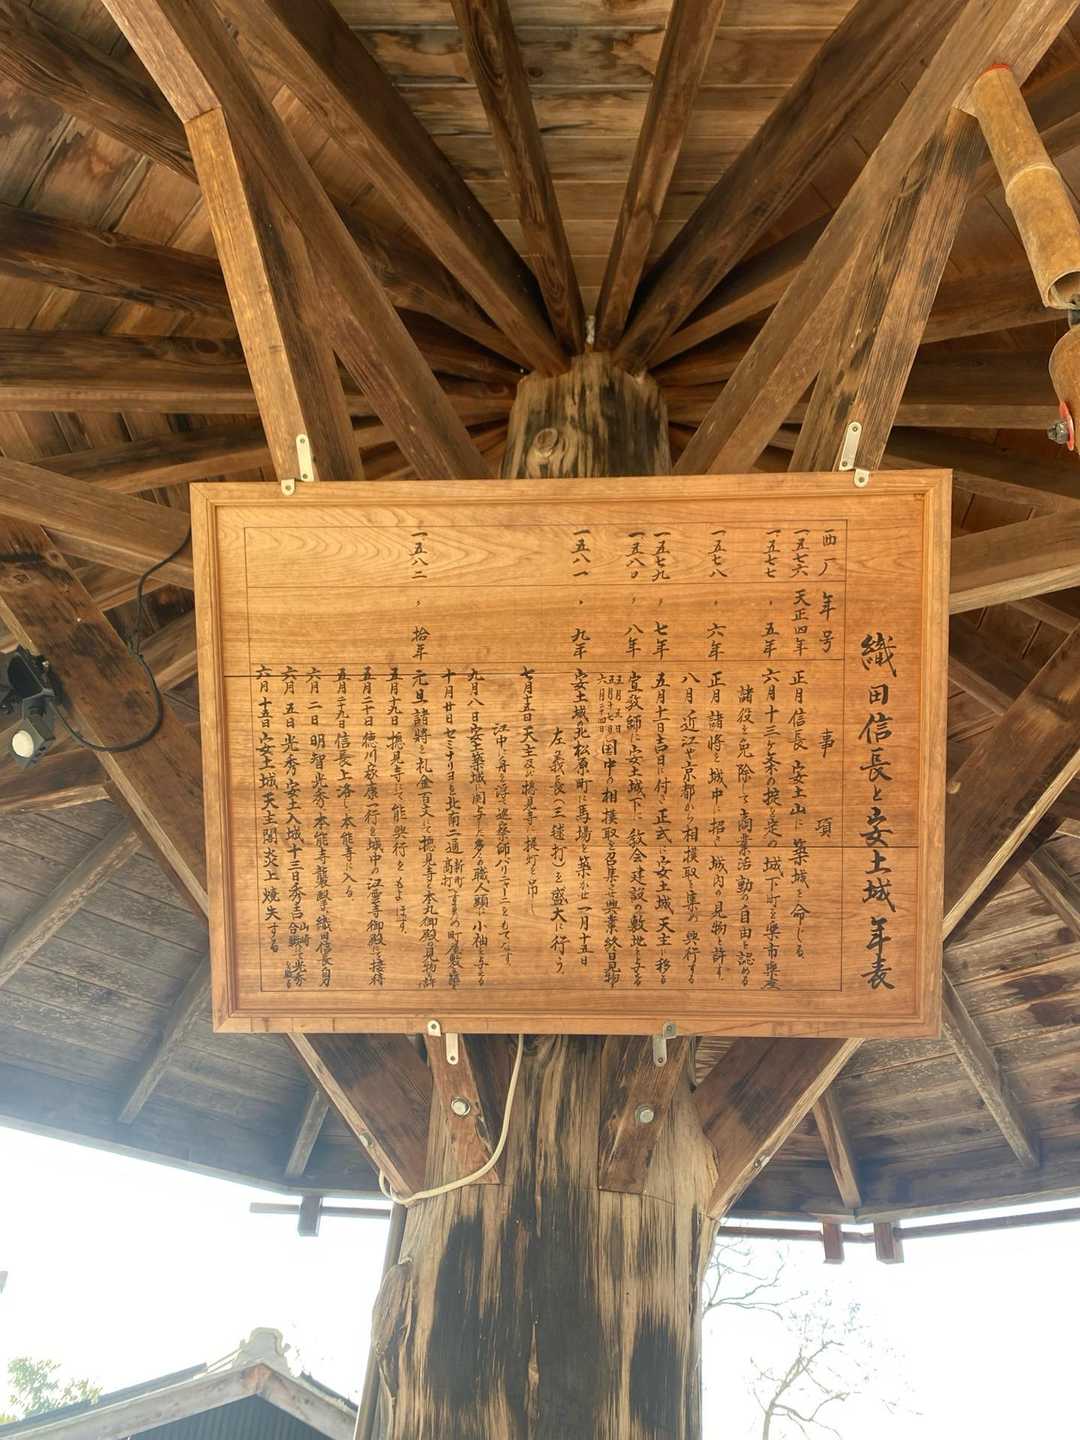 織田信長と安土城年表
西暦 年号 事項
一五七六 天正四年 正月信長 安土山に築城を命じる
一五七七 〃 五年 六月十三ヶ条の掟を定め 城下町を楽市楽座
諸役を免除して商業活動の自由を認める
一五七八 〃 六年 正月 諸将を城中に招き 城内の見物を許す
八月 近江や京都から相撲取を集め 興行する
一五七九 〃 七年 五月十一日吉日に付き正式に安土城天主に移る
一五八〇 〃 八年 宣教師に安土城下に教会建設の敷地を与える
国中の相撲取を召集させ興業終日見物
一五八一 〃 九年 安土城の北松原町に馬場を築かせ一月十五日
左義長(三毬打)を盛大に行う
七月十五日天主及び摠見寺に提灯を吊し
江中に舟を浮べ巡察師バリニャーニをもてなす
九月八日安土築城に関与した多くの職人頭に小袖を与える
十月廿日セミナリヨを北南二通
一五八二 〃 拾年 元旦諸将を礼金百文にて摠見寺と本丸御殿の見物を許
五月十九日 摠見寺にて能興行をもよほす
五月二十日徳川家康一行を城中の江雲寺御殿にて接待
五月二十九日信長上洛し本能寺に入る
六月二日明智光秀本能寺襲撃織田信長自刃
六月五日光秀安土入城十三日秀吉山崎合戦にて光秀
六月十五日安土城天主閣炎上焼失する